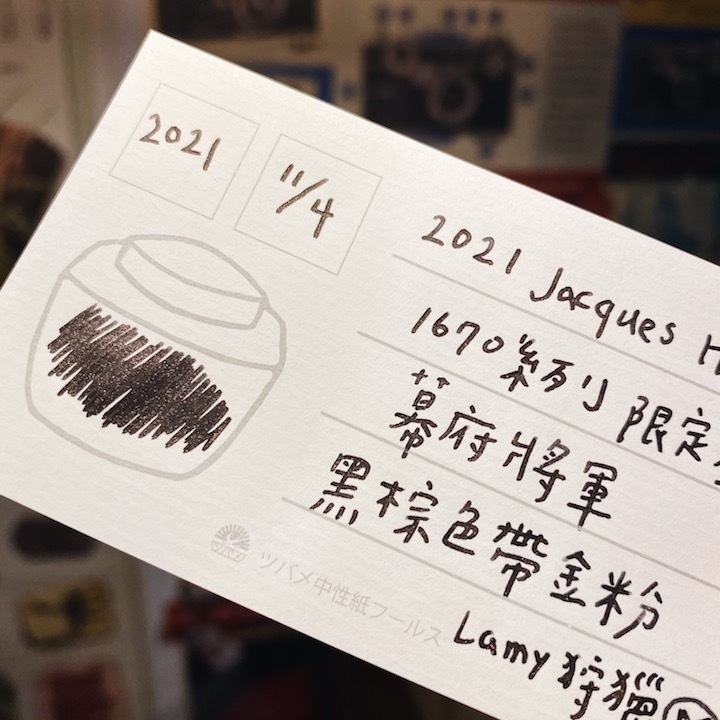 2021
11/4
2021 Jacques H
1670系列限定
幕府將軍
黑棕色帶金粉
ツバメ中性紙フールス
Lamy狩獵